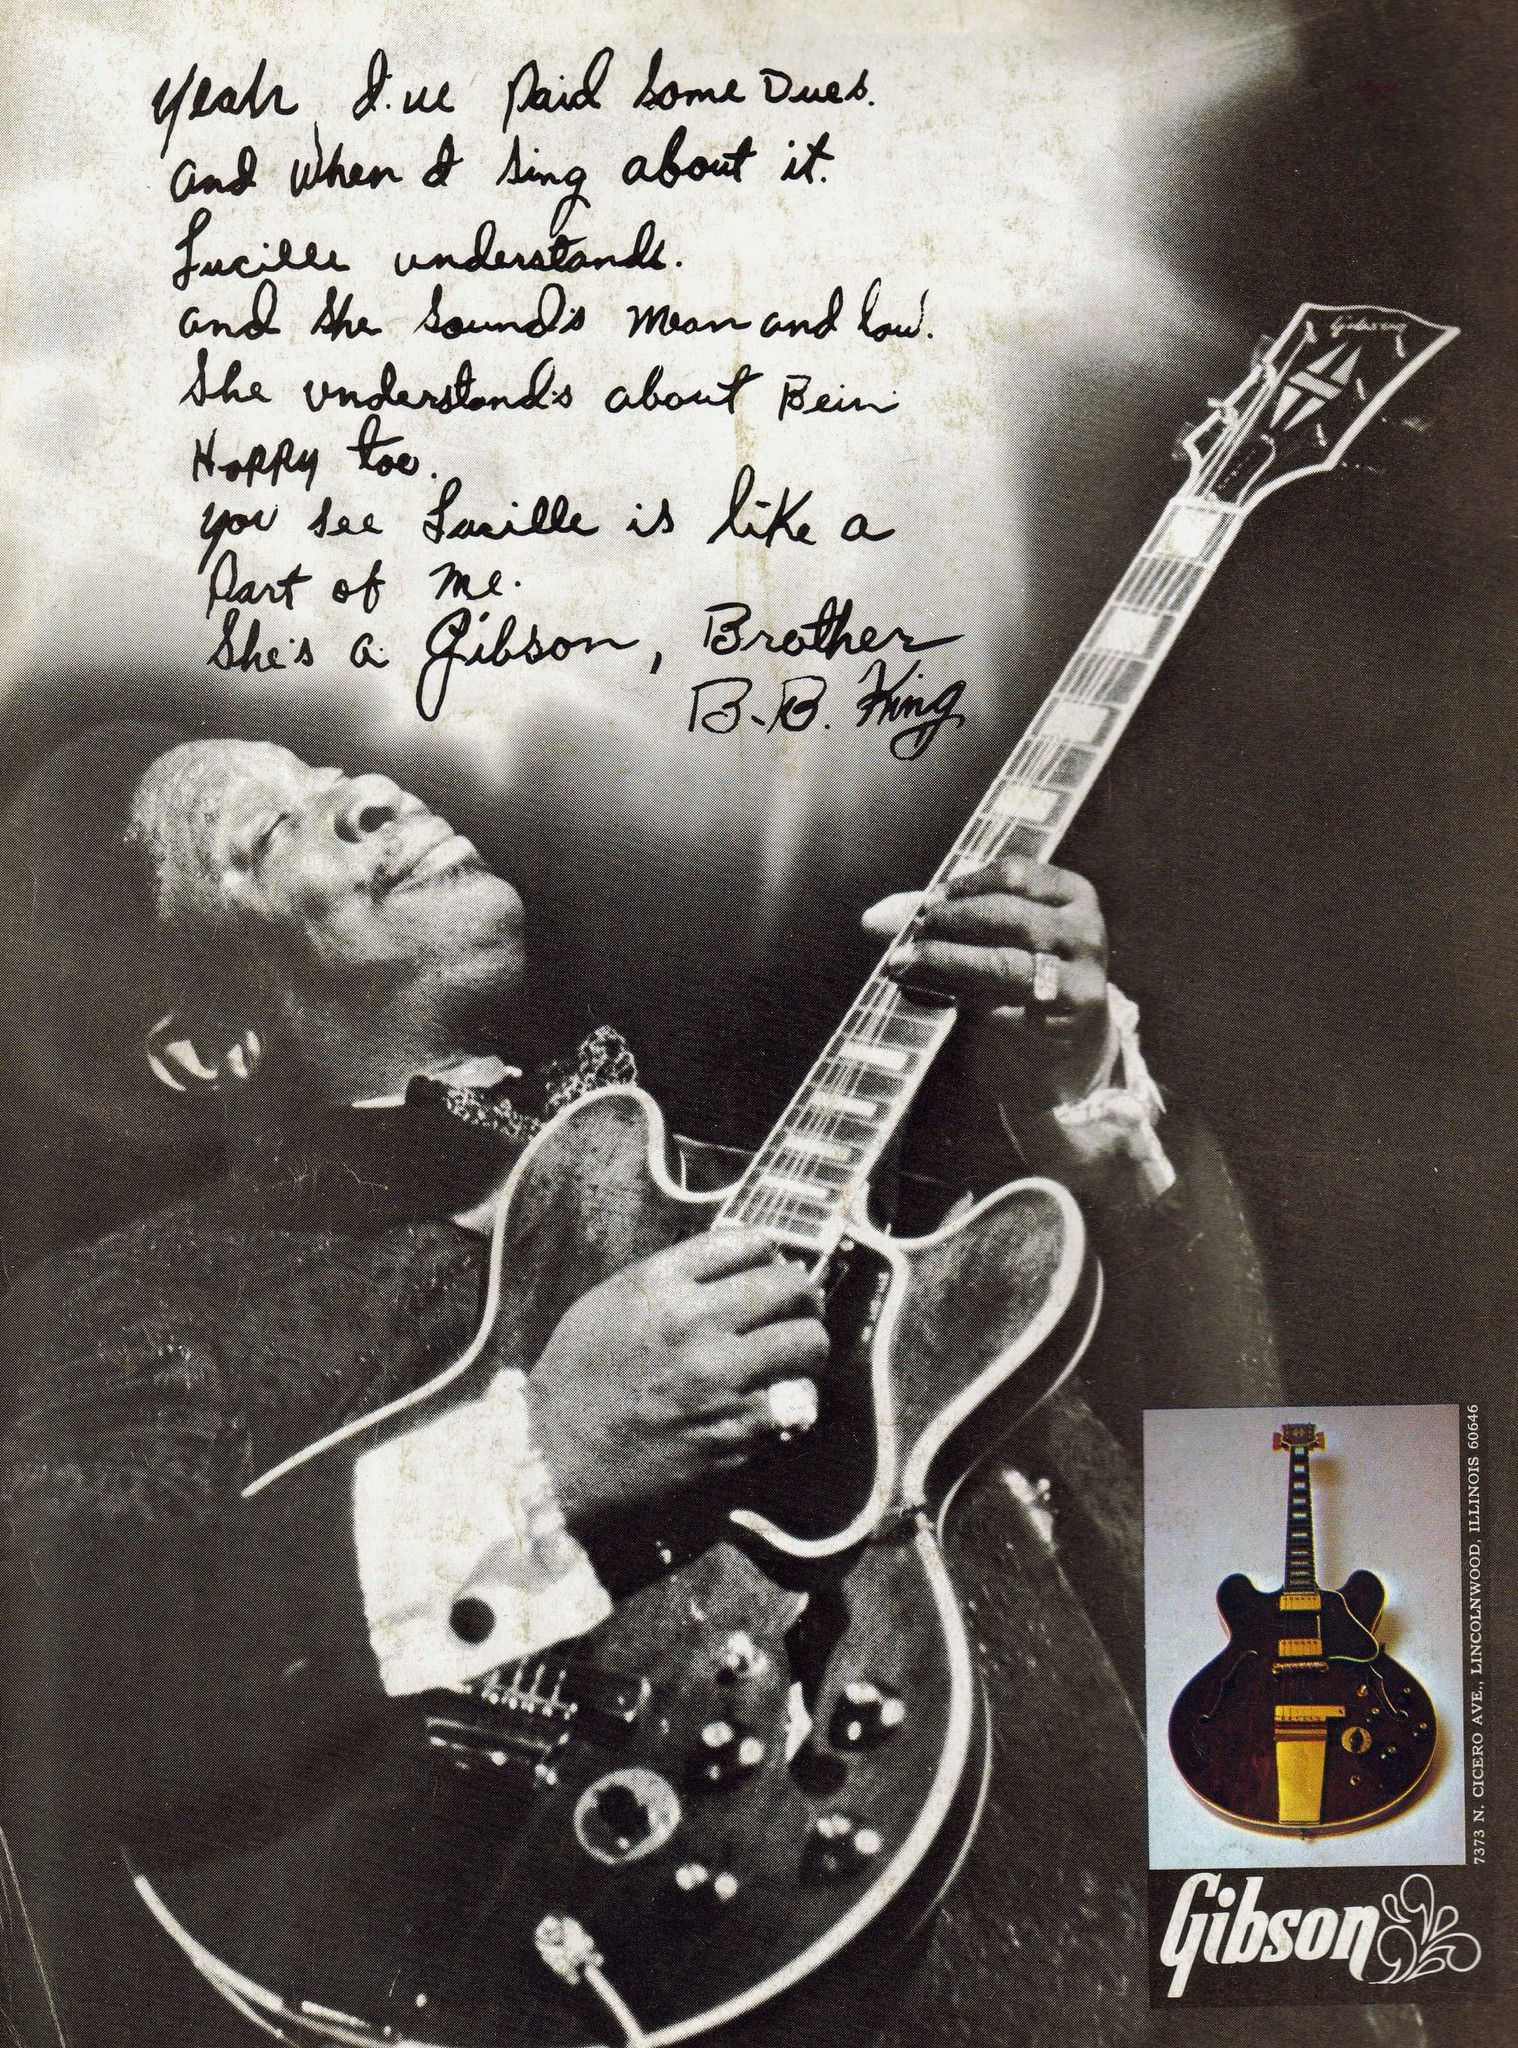 Yeah, I've Paid Some Dues.
and when I sing about it.
Lucille understands.
and she sounds mean and low.
She understands about Bein
Happy too.
you see Lucille is like a
Part of me.
She's a Gibson, Brother
B.B. King
Gibson
7373 N. CICERO AVE., LINCOLNWOOD, ILLINOIS 60646
Gibson